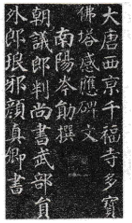 大唐西京千福寺多寶
佛塔感應碑文
南陽岑勛撰
朝議郎判尚書武部員
外郎琅邪顏真卿書